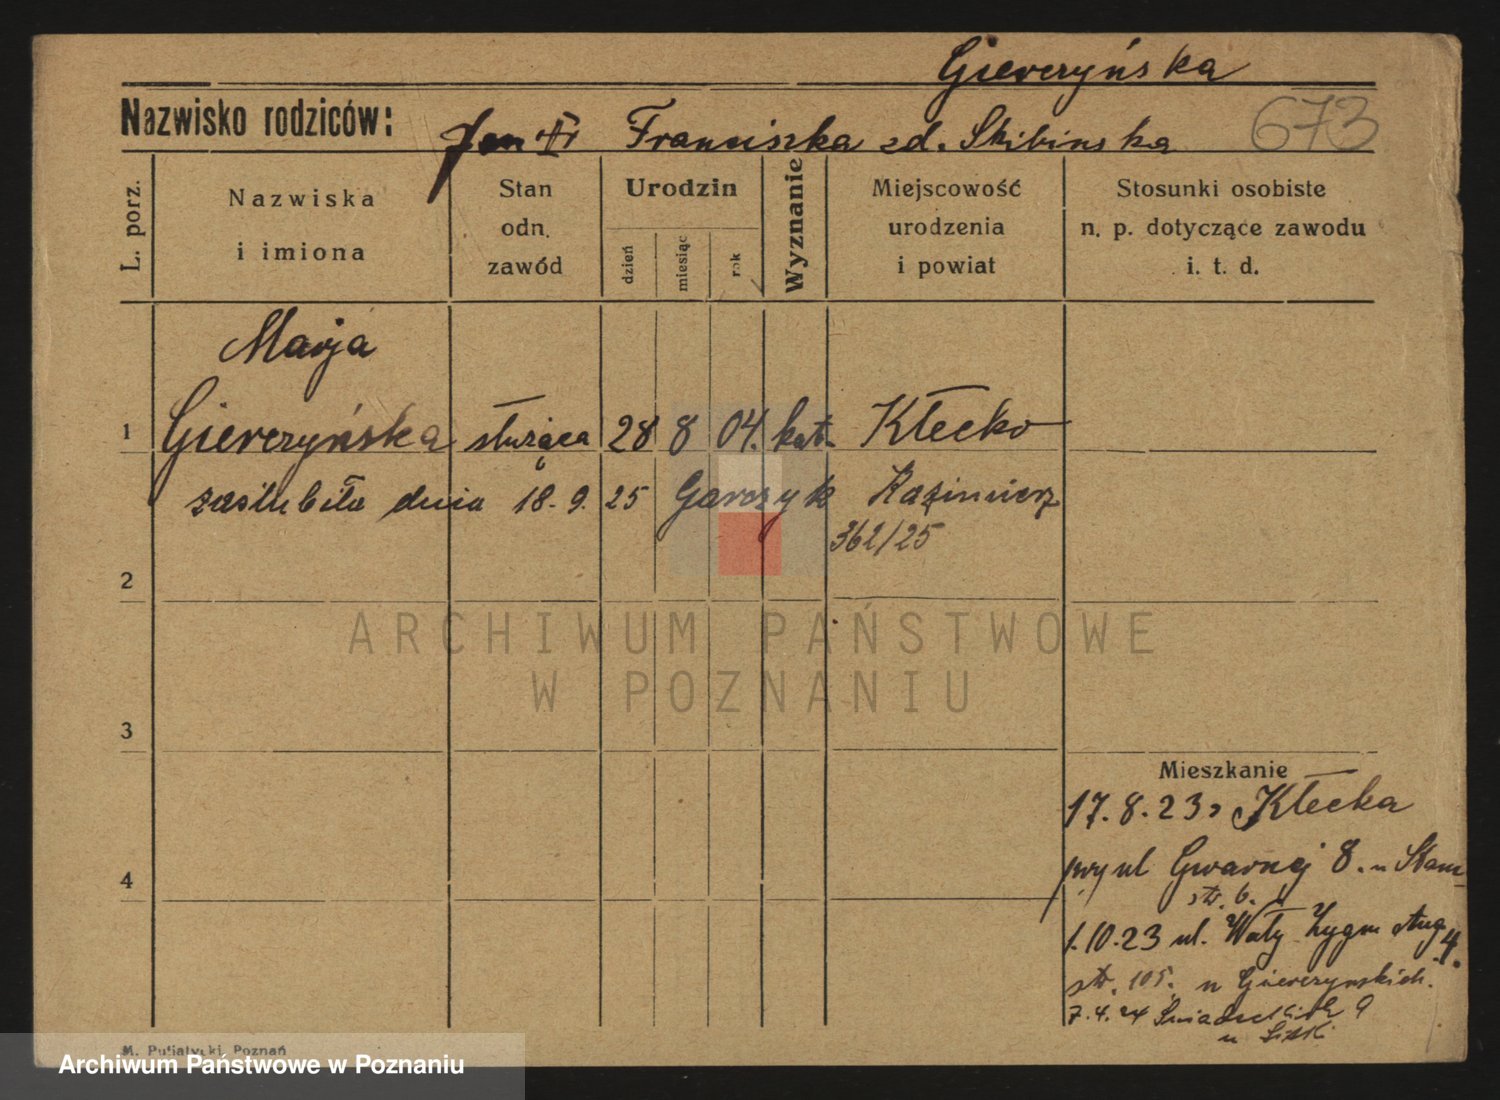 Gierczyńska
Nazwisko rodziców: Jan Franciszka zd. Skibinska
673
L. porz.
Nazwiska i imiona
Stan odn. zawód
Urodzin
dzień miesiąc rok
Wyznanie
Miejscowość urodzenia i powiat
Stosunki osobiste n. p. dotyczące zawodu i. t. d.
Marja
1 Gierczyńska służąca 28 8 04. kat. Kłecko
zaślubiła dnia 18. 9. 25 Garczyk Kazimierz
362/25
2
ARCHIWUM PAŃSTWOWE
W POZNANIU
3
Mieszkanie
17. 8. 23 z Kłecka
4 przy ul Gwarnej 8. u
str. 6.
1.10.23 ul. Wały Zygm Aug. 4.
str. 105. u Gierczynskich.
7.4.24 9
u
M. Putiatycki, Poznań
Archiwum Państwowe w Poznaniu